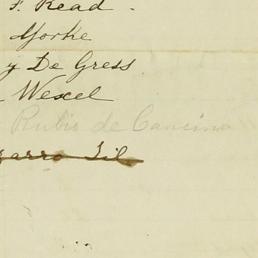 F. Read.
Yorke
y De Gress.
Wexel
Rubio de Cancino
zarro Gil